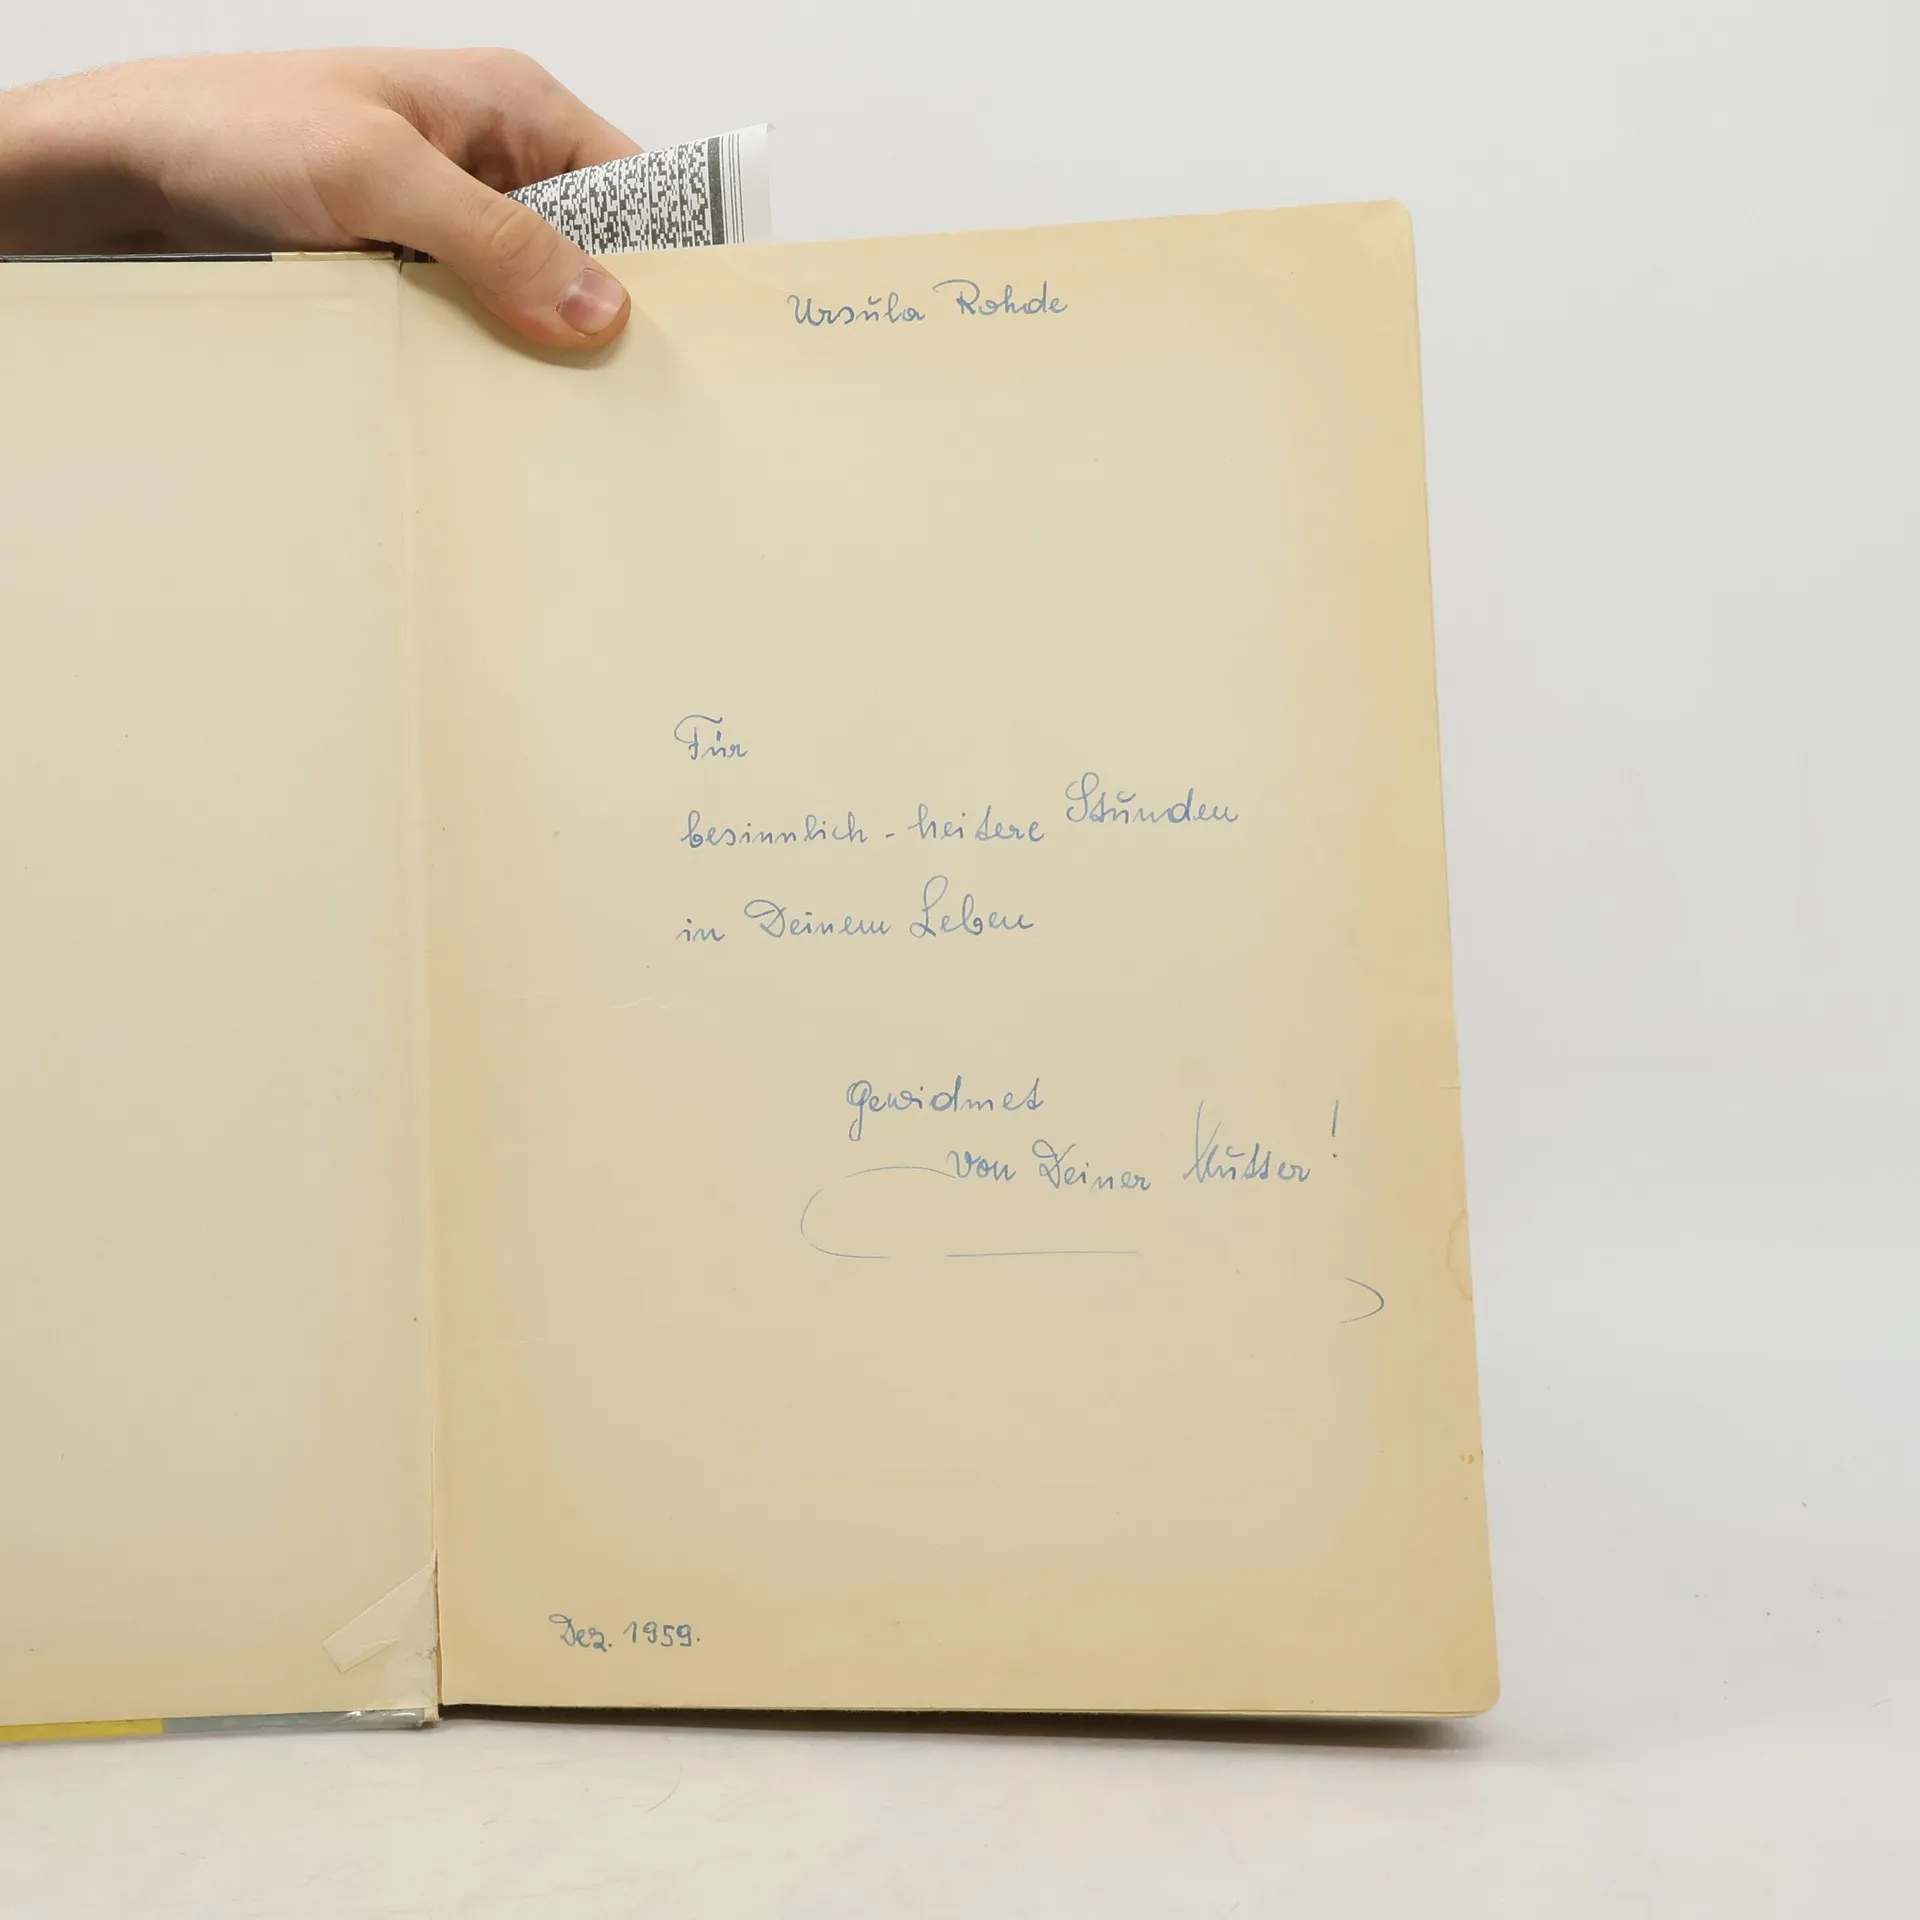 Ursula Rohde
Für
besinnlich - heitere Stunden
in Deinem Leben
Gewidmet
von Deiner Mutter!
Dez. 1959.